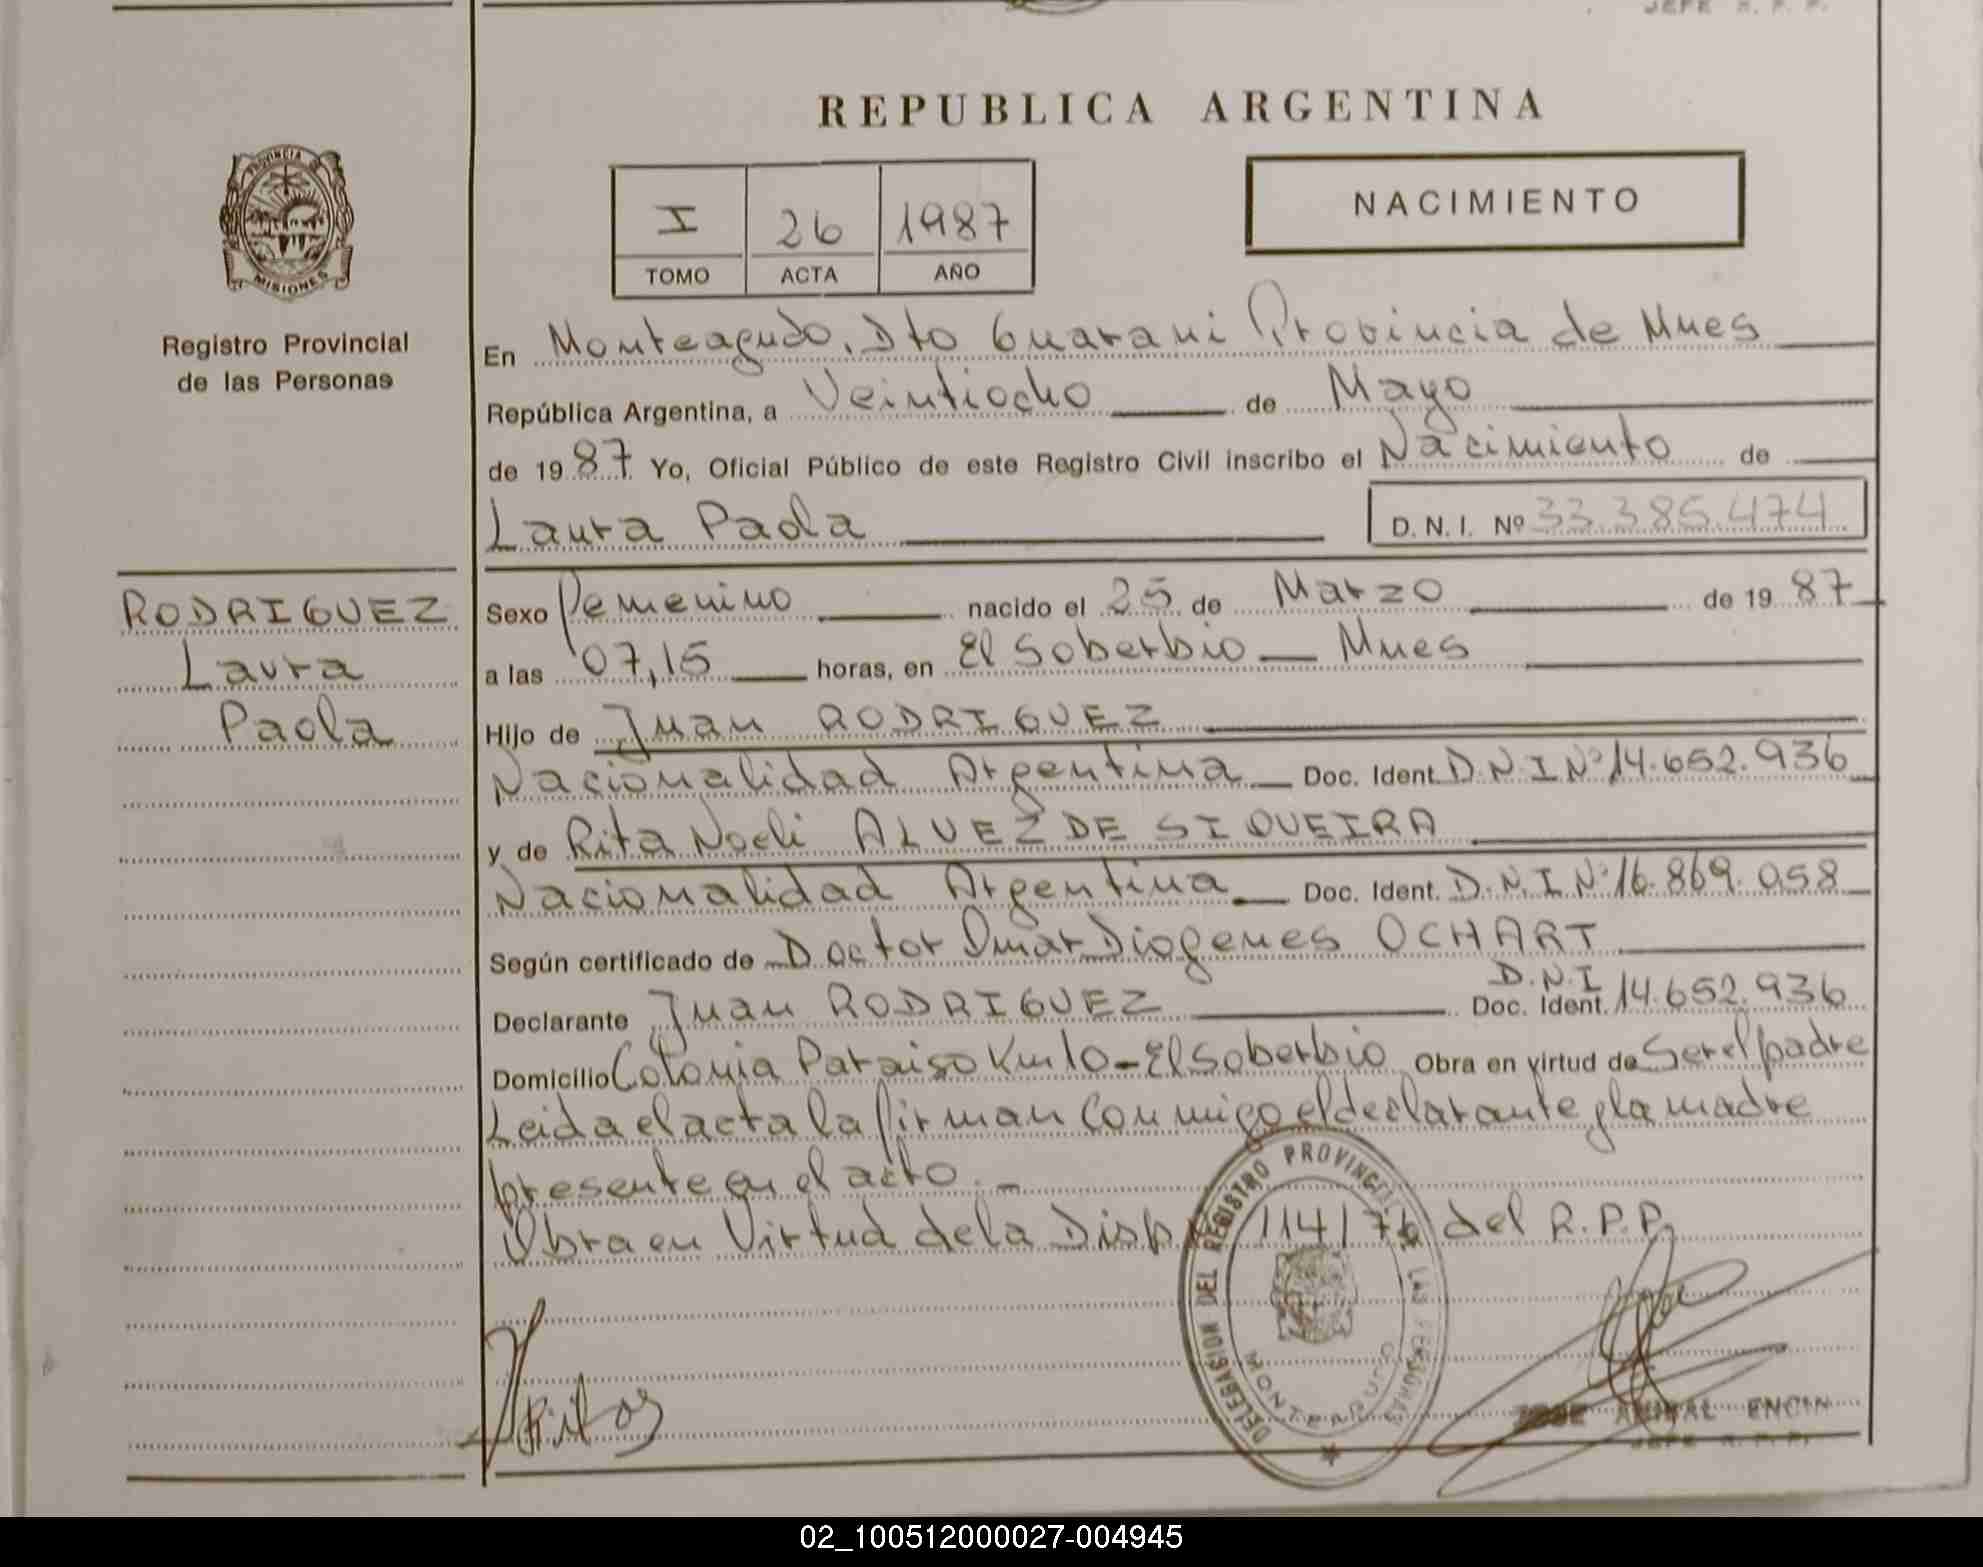 JEFE R. P. P.
REPUBLICA ARGENTINA
PROVINCIA DE
MISIONES
Registro Provincial
de las Personas
I 26 1987
TOMO ACTA AÑO
NACIMIENTO
En Monteagudo, Dto Guarani Provincia de Mnes
República Argentina, a Veintiocho de Mayo
de 1987 Yo, Oficial Público de este Registro Civil inscribo el Nacimiento de
Laura Paola D. N. I. Nº 33.385.474
RODRIGUEZ
Laura
Paola
Sexo Femenino nacido el 25 de Marzo de 1987
a las 07,15 horas, en El Soberbio — Mnes
Hijo de Juan RODRIGUEZ
Nacionalidad Argentina — Doc. Ident. D.N.I Nº 14.652.936
y de Rita Noeli ALVEZ DE SIQUEIRA
Nacionalidad Argentina — Doc. Ident. D.N.I Nº 16.869.058
Según certificado de Doctor Omar Diogenes OCHART
Declarante Juan RODRIGUEZ Doc. Ident. D.N.I 14.652.936
Domicilio Colonia Paraiso Km 10 - El Soberbio Obra en virtud de Ser el padre
Leida el acta la firman Conmigo el declarante y la madre
presente en el acto. —
Obra en Virtud de la Disp. 114/76 del R.P.P.
DELEGACION DEL REGISTRO PROVINCIAL DE LAS PERSONAS
MONTEAGUDO
JOSE ANIBAL ENCIN
JEFE R. P. P.
02_100512000027-004945